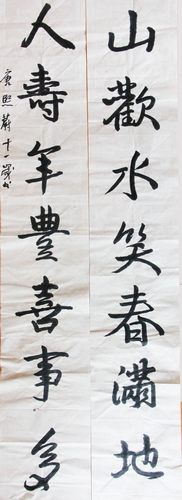 山歡水笑春滿地
人壽年豊喜事多
唐熙蔚十一歲书